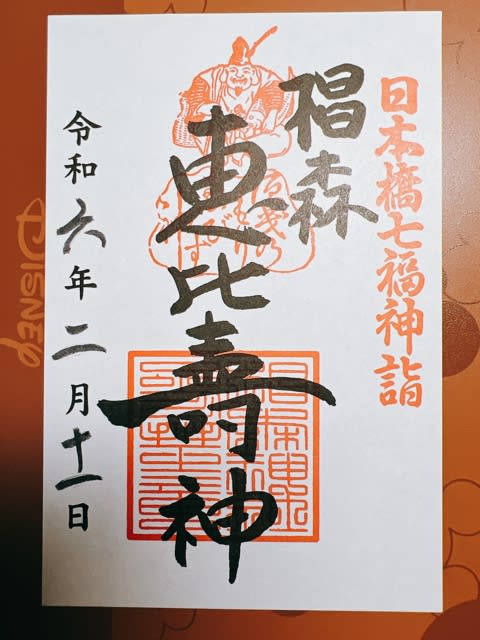 日本橋七福神詣
椙森
恵比壽神
令和六年二月十一日
DISNEY